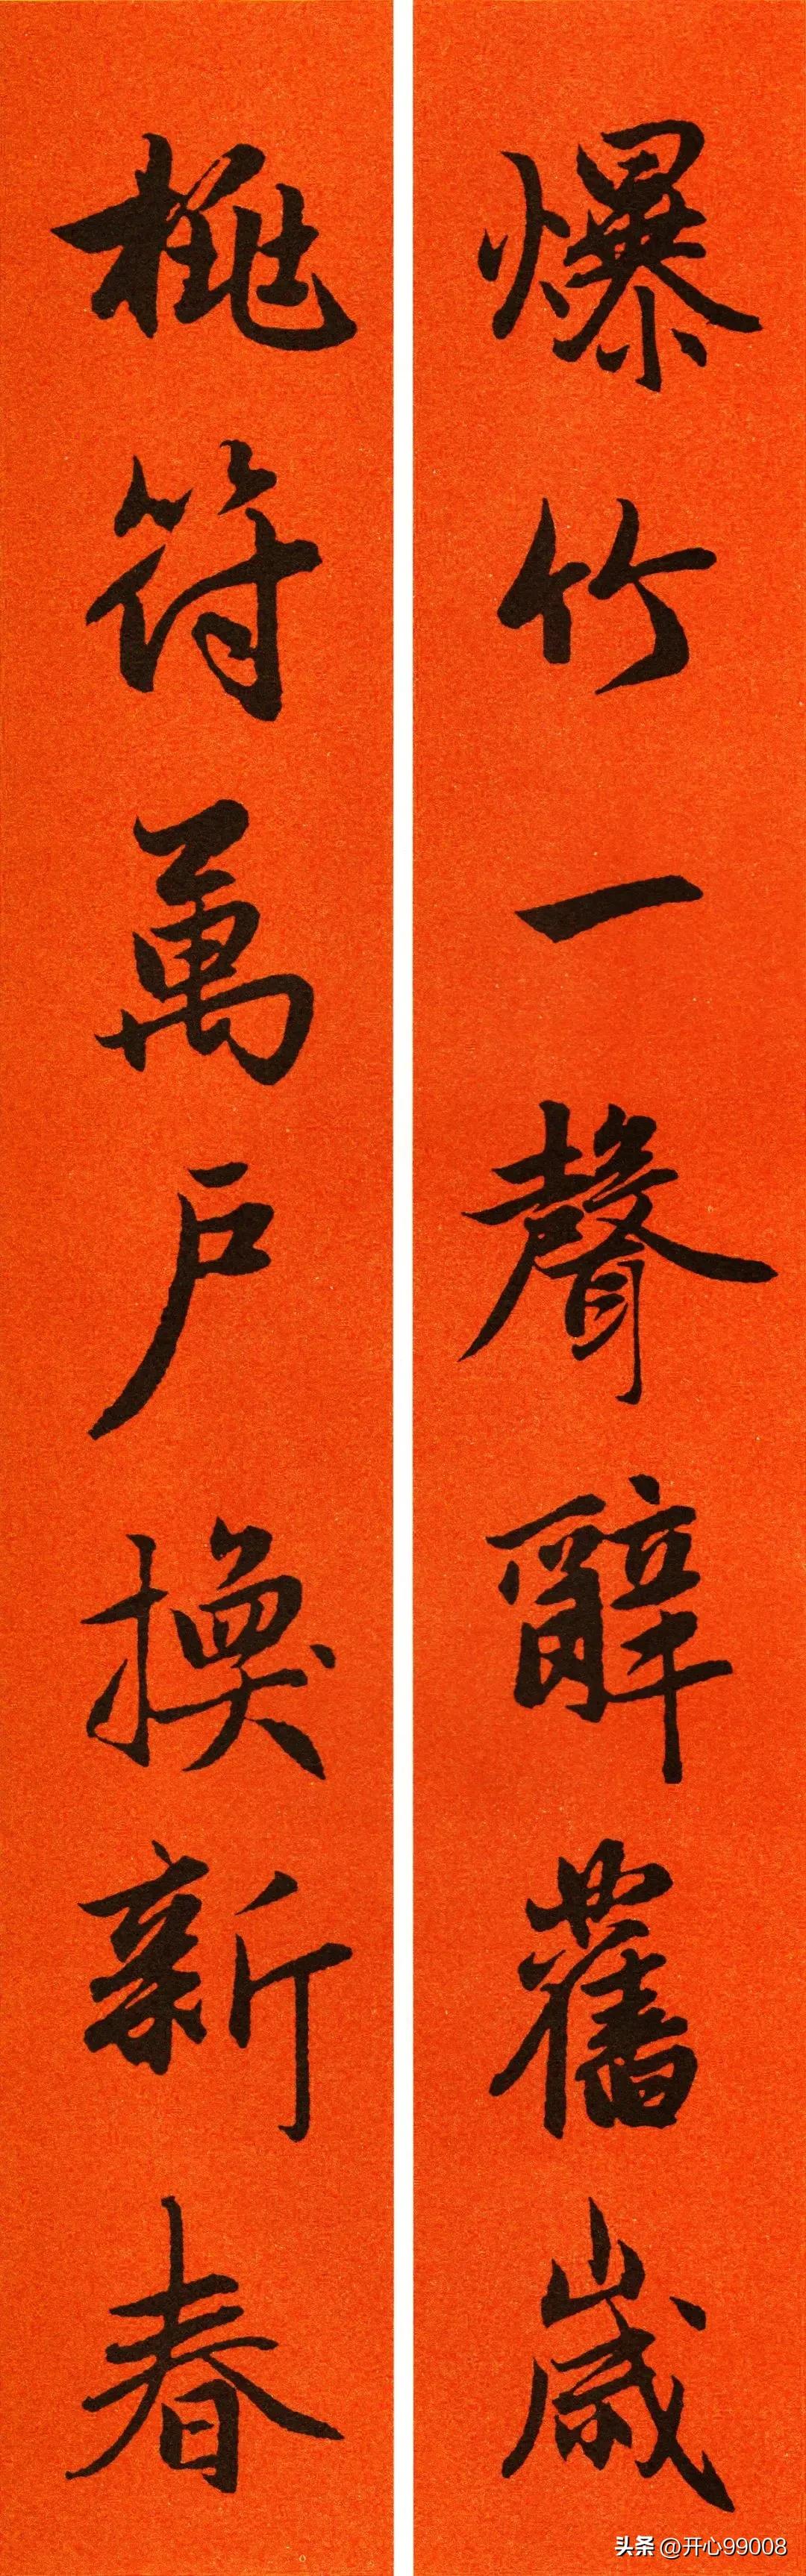 爆竹一聲辭舊歲
桃符萬戶換新春
头条 @开心99008